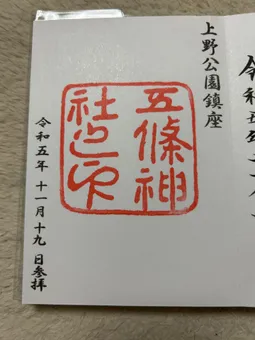 上野公園鎮座
五條神
社之印
令和五年 十一月十九 日参拝